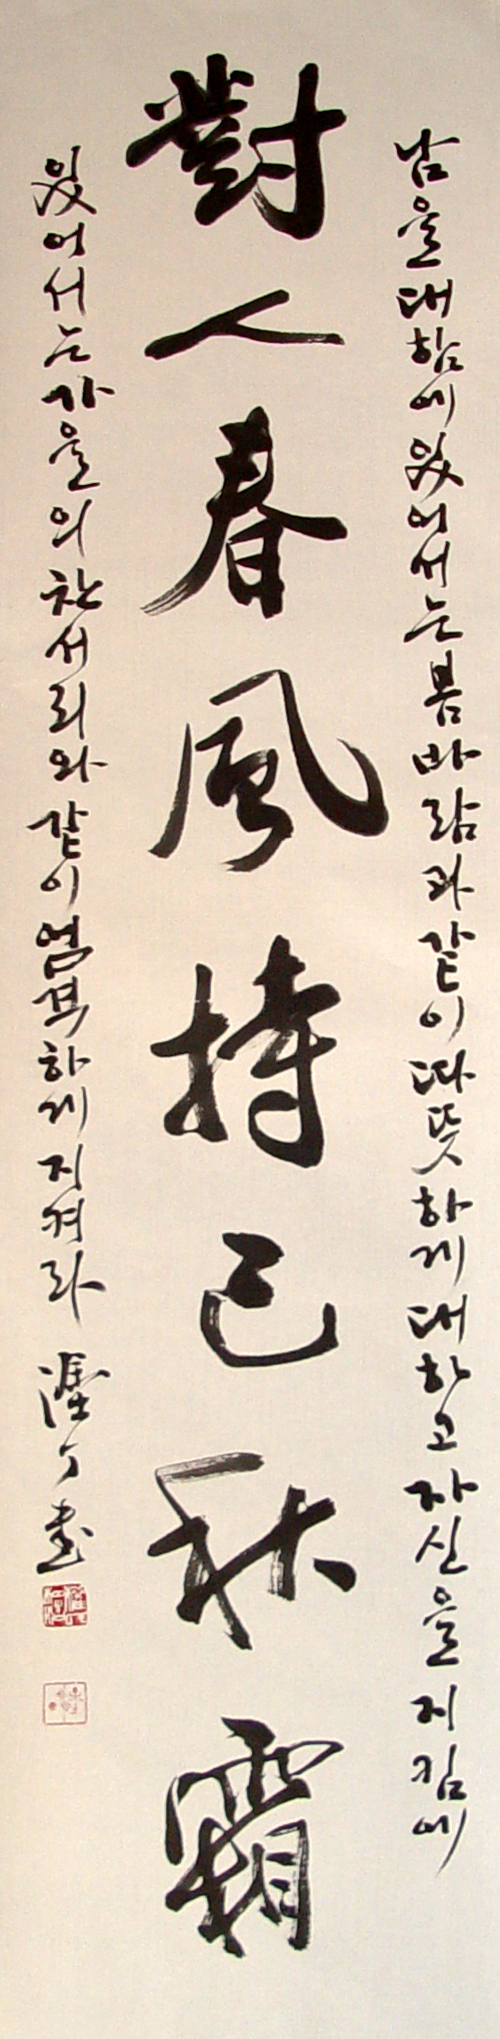 남을 대함에 있어서는 봄바람과 같이 따뜻하게 대하고 자신을 지킴에
對人春風持己秋霜
있어서는 가을의 찬서리와 같이 엄격하게 지켜라 書